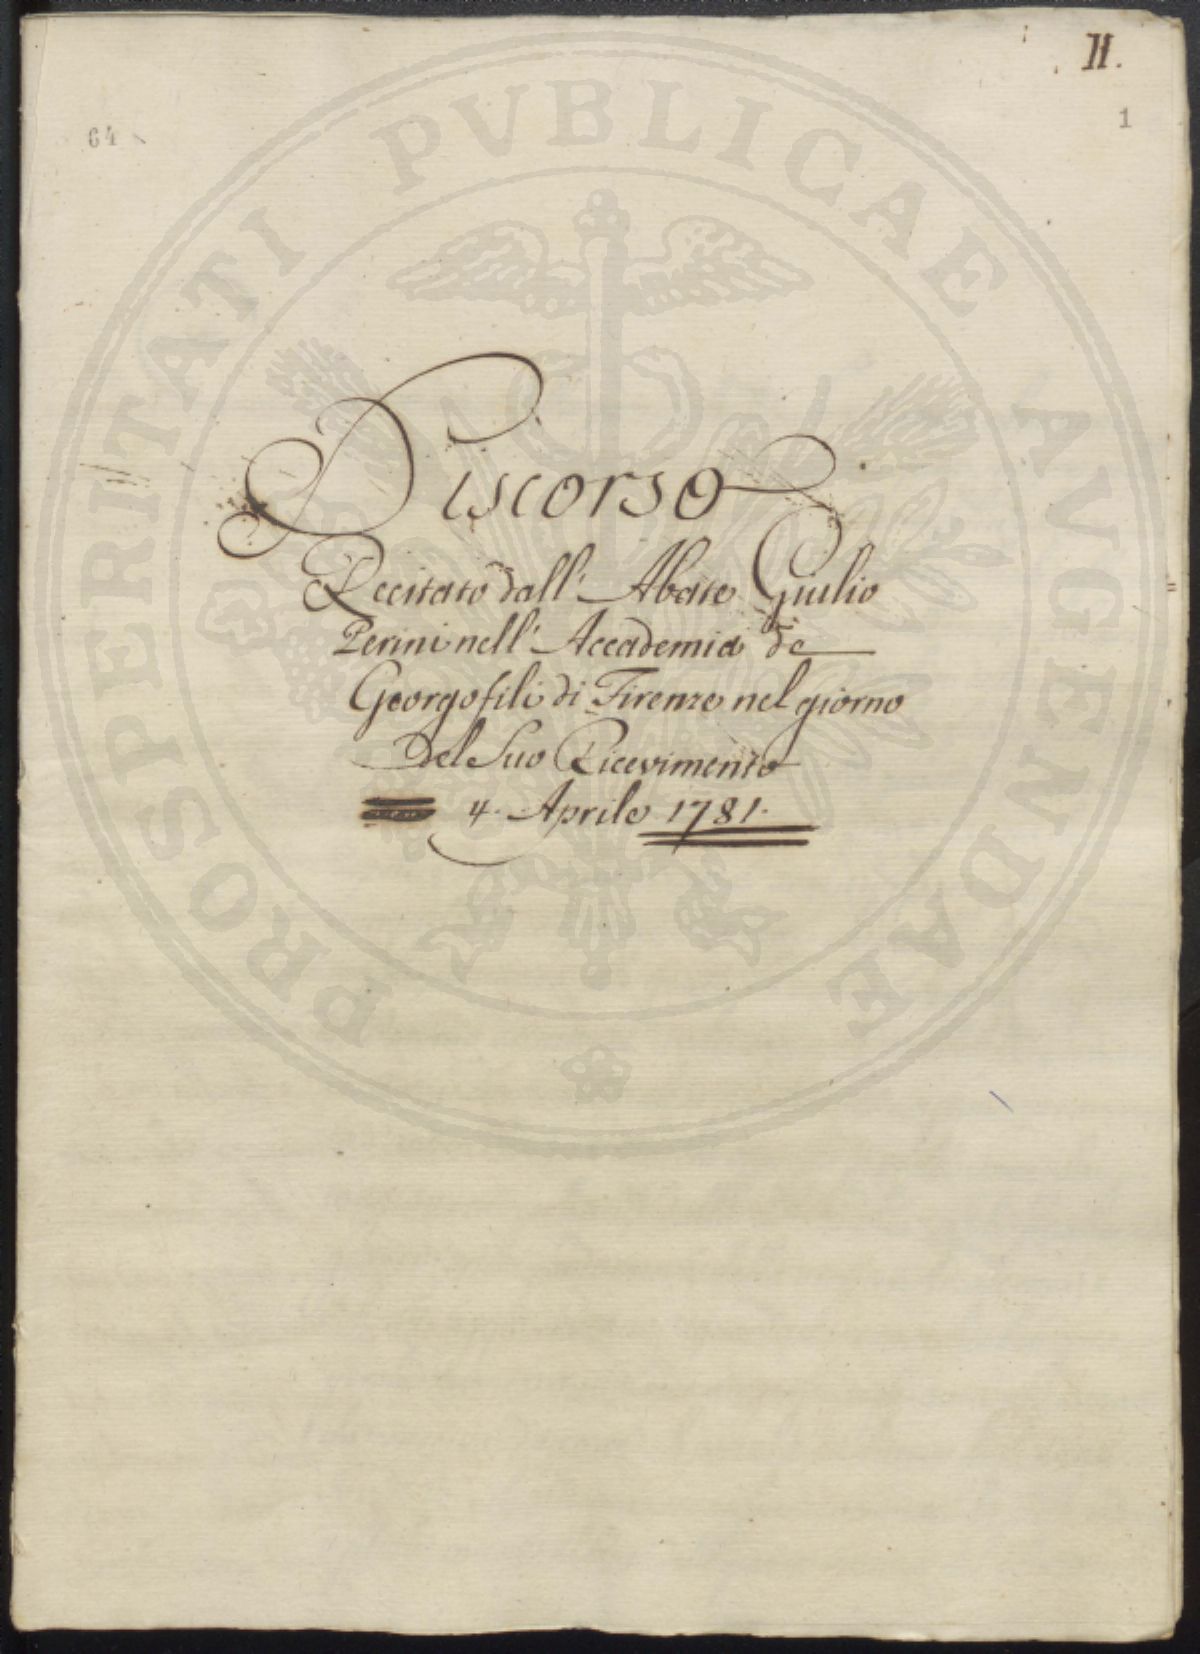 II.
64
1
Discorso
Recitato dall' Abate Giulio
Perini nell' Accademia de
Georgofili di Firenze nel giorno
del Suo Ricevimento
4. Aprile 1781.
PROSPERITATI PVBLICAE AVGENDAE